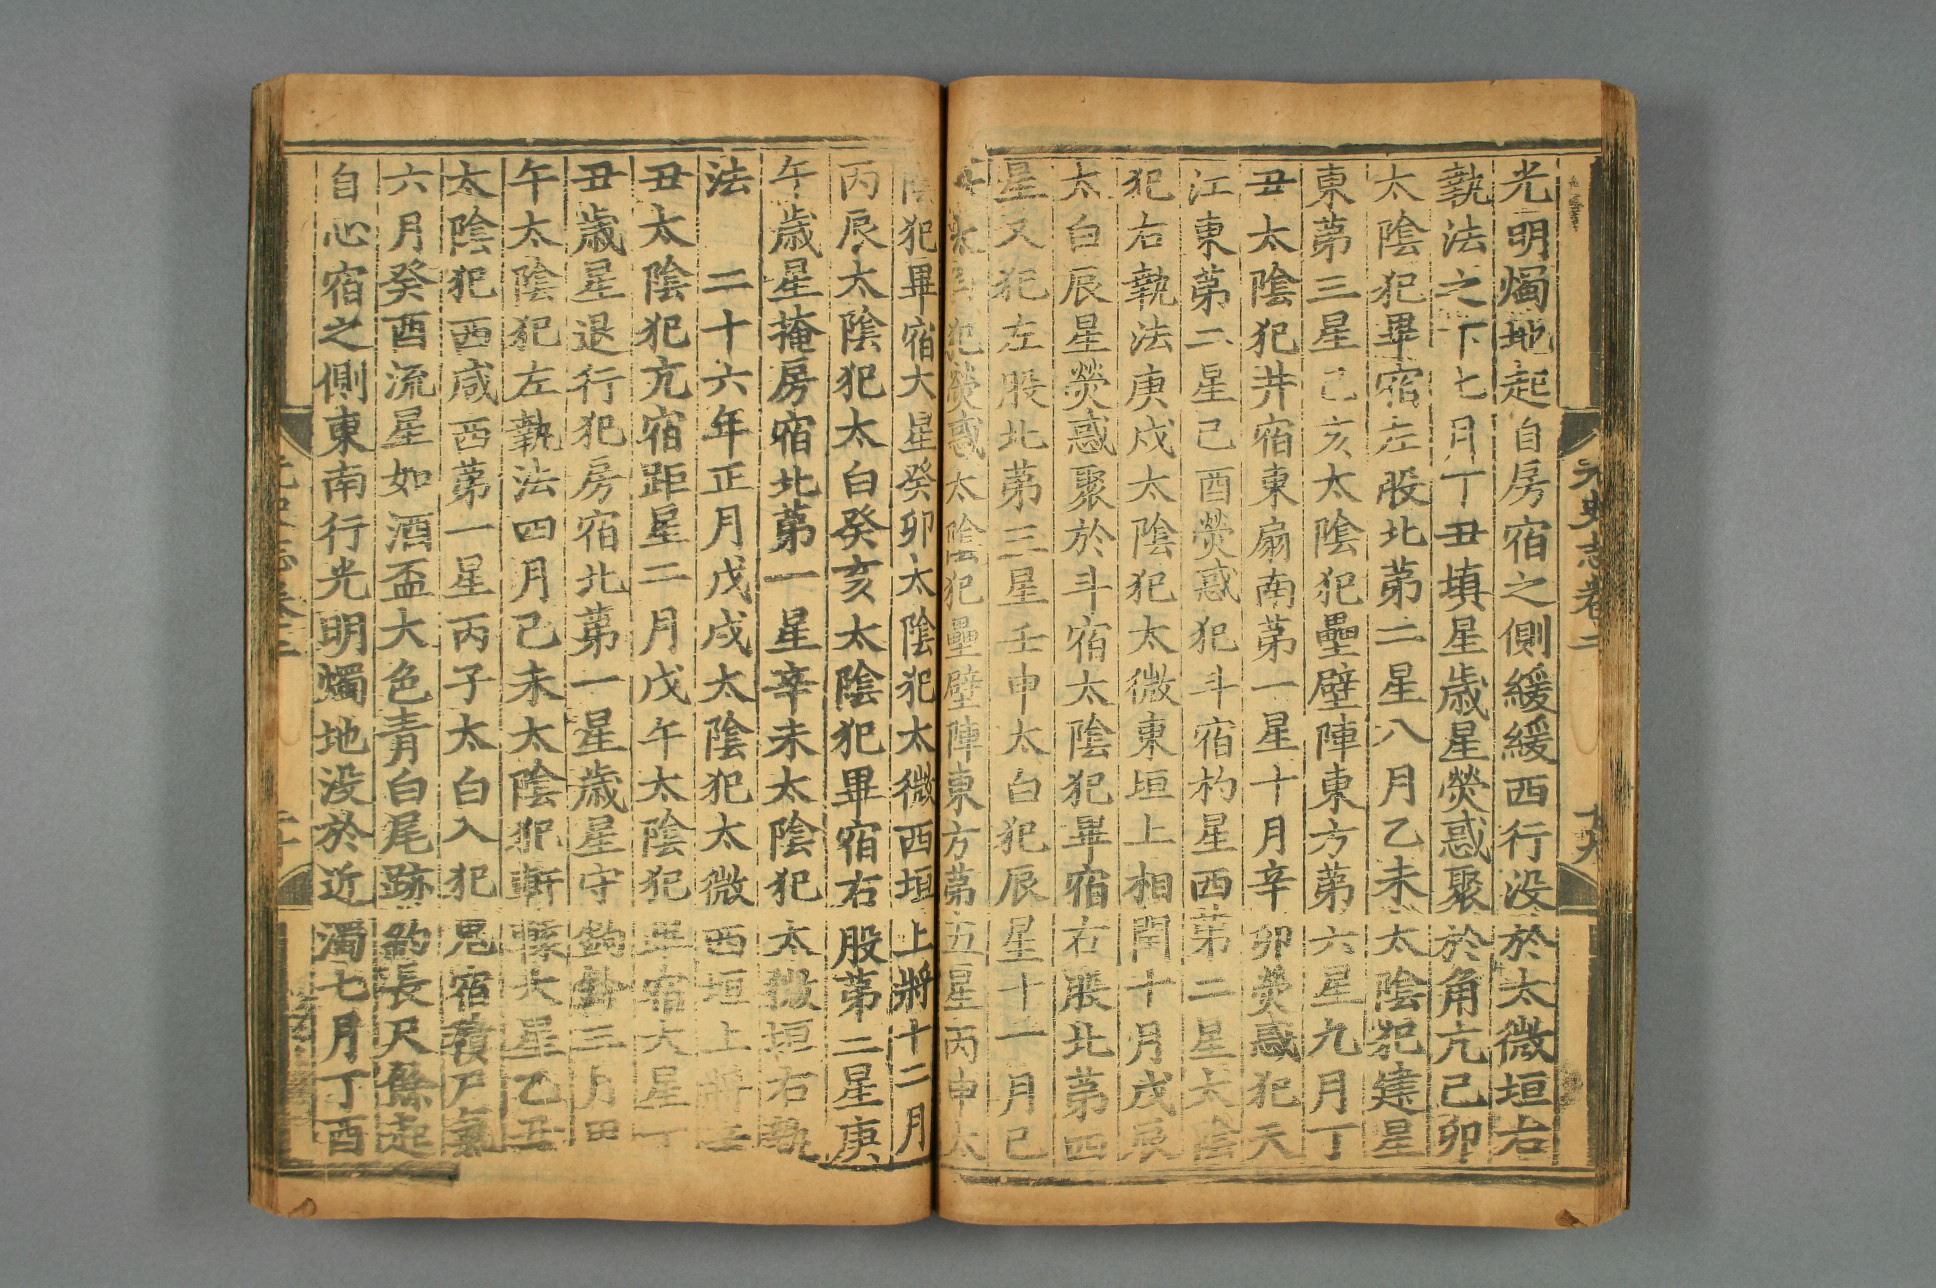 元史志卷二
十九
光明燭地起自房宿之側緩緩西行没於太微垣右
執法之下七月丁丑填星歲星熒惑聚於角亢己卯
太陰犯畢宿左股北第二星八月乙未太陰犯建星
東第三星己亥太陰犯壘壁陣東方第六星九月丁
丑太陰犯井宿東扇南第一星十月辛卯熒惑犯天
江東第二星己酉熒惑犯斗宿杓星西第二星太陰
犯右執法庚戌太陰犯太微東垣上相閏十月戊辰
太白辰星熒惑聚於斗宿太陰犯畢宿右股北第四
星又犯左股北第三星壬申太白犯辰星十一月己
犯熒惑太陰犯壘壁陣東方第五星丙申太
陰犯畢宿大星癸卯太陰犯太微西垣上將十二月
丙辰太陰犯太白癸亥太陰犯畢宿右股第二星庚
午歲星掩房宿北第一星辛未太陰犯太微垣右執
法 二十六年正月戊戌太陰犯太微西垣上將
丑太陰犯亢宿距星二月戊午太陰犯畢宿大星丁
丑歲星退行犯房宿北第一星歲星守鉤鈐三月甲
午太陰犯左執法四月己未太陰犯軒轅大星乙丑
太陰犯西咸西第一星丙子太白入犯鬼宿積尸氣
六月癸酉流星如酒盃大色青白尾跡約長尺餘起
自心宿之側東南行光明燭地没於近濁七月丁酉
元史志卷二
二十